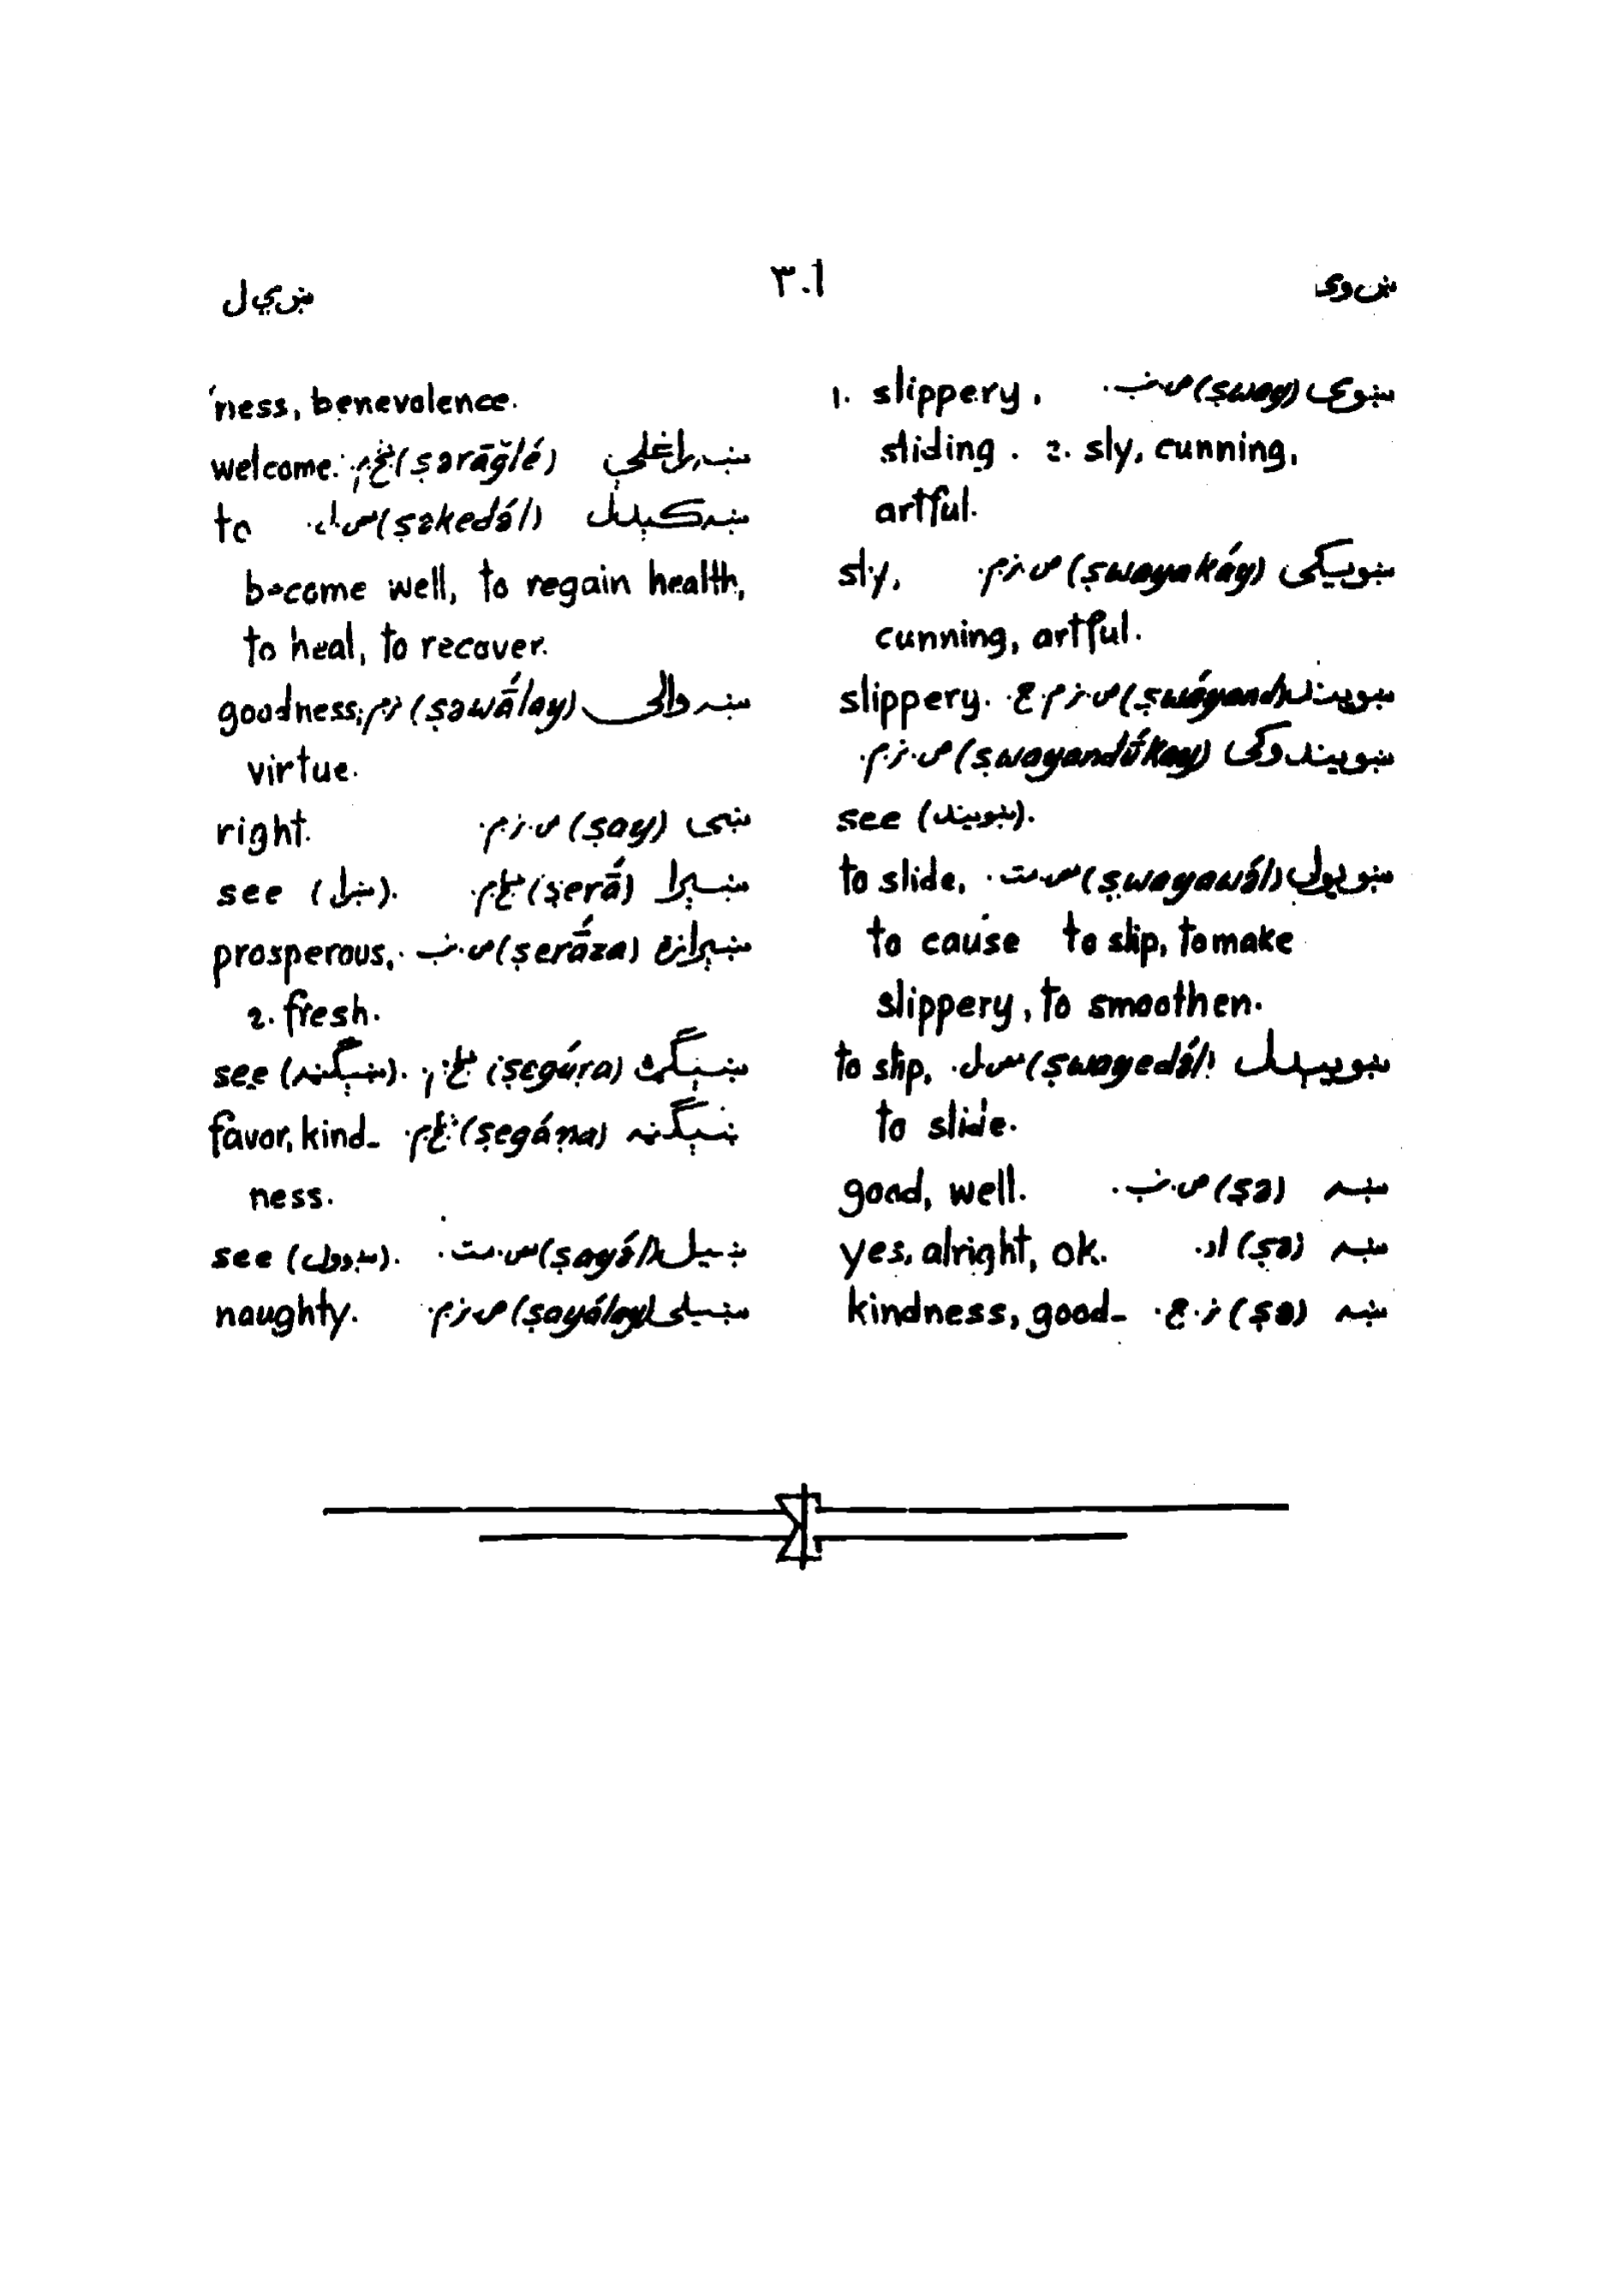 ښ وی
۳۰۱
ښ ي ل
ښوی (ṣway) ص.ن. 1. slippery,
sliding. 2. sly, cunning,
artful.
ښوییکی (ṣwayakáy) ص.ن.م. sly,
cunning, artful.
ښویند (ṣwáyand) ص.ن.م.ج. slippery.
ښویندوکی (ṣwayandū́kay) ص.ن.م.
see (ښویند).
ښویول (ṣwayawә́l) س.مت. to slide,
to cause to slip, to make
slippery, to smoothen.
ښوییدل (ṣwayedә́l) س.ل. to slip,
to slide.
ښه (ṣә) ص.ن. good, well.
ښه (ṣә) اد. yes, alright, ok.
ښه (ṣә) ن.ج. kindness, good-
ness, benevolence.
ښه راغلې (ṣәrāğlé) welcome.
ښه کېدل (ṣәkedә́l) س.ل. to
become well, to regain health,
to heal, to recover.
ښه والی (ṣәwā́lay) ن.م. goodness,
virtue.
ښی (ṣay) ص.ن.م. right.
ښېرا (ṣerā́) see (ښرا).
ښېرازه (ṣerā́za) ص.ن. prosperous,
2. fresh.
ښېګړه (ṣegáṛa) see (ښېګڼه).
ښېګڼه (ṣegáṇa) favor, kind-
ness.
ښیل (ṣayә́l) س.مت. see (ښوول).
ښیلی (ṣayálay) ص.ن.م. naughty.